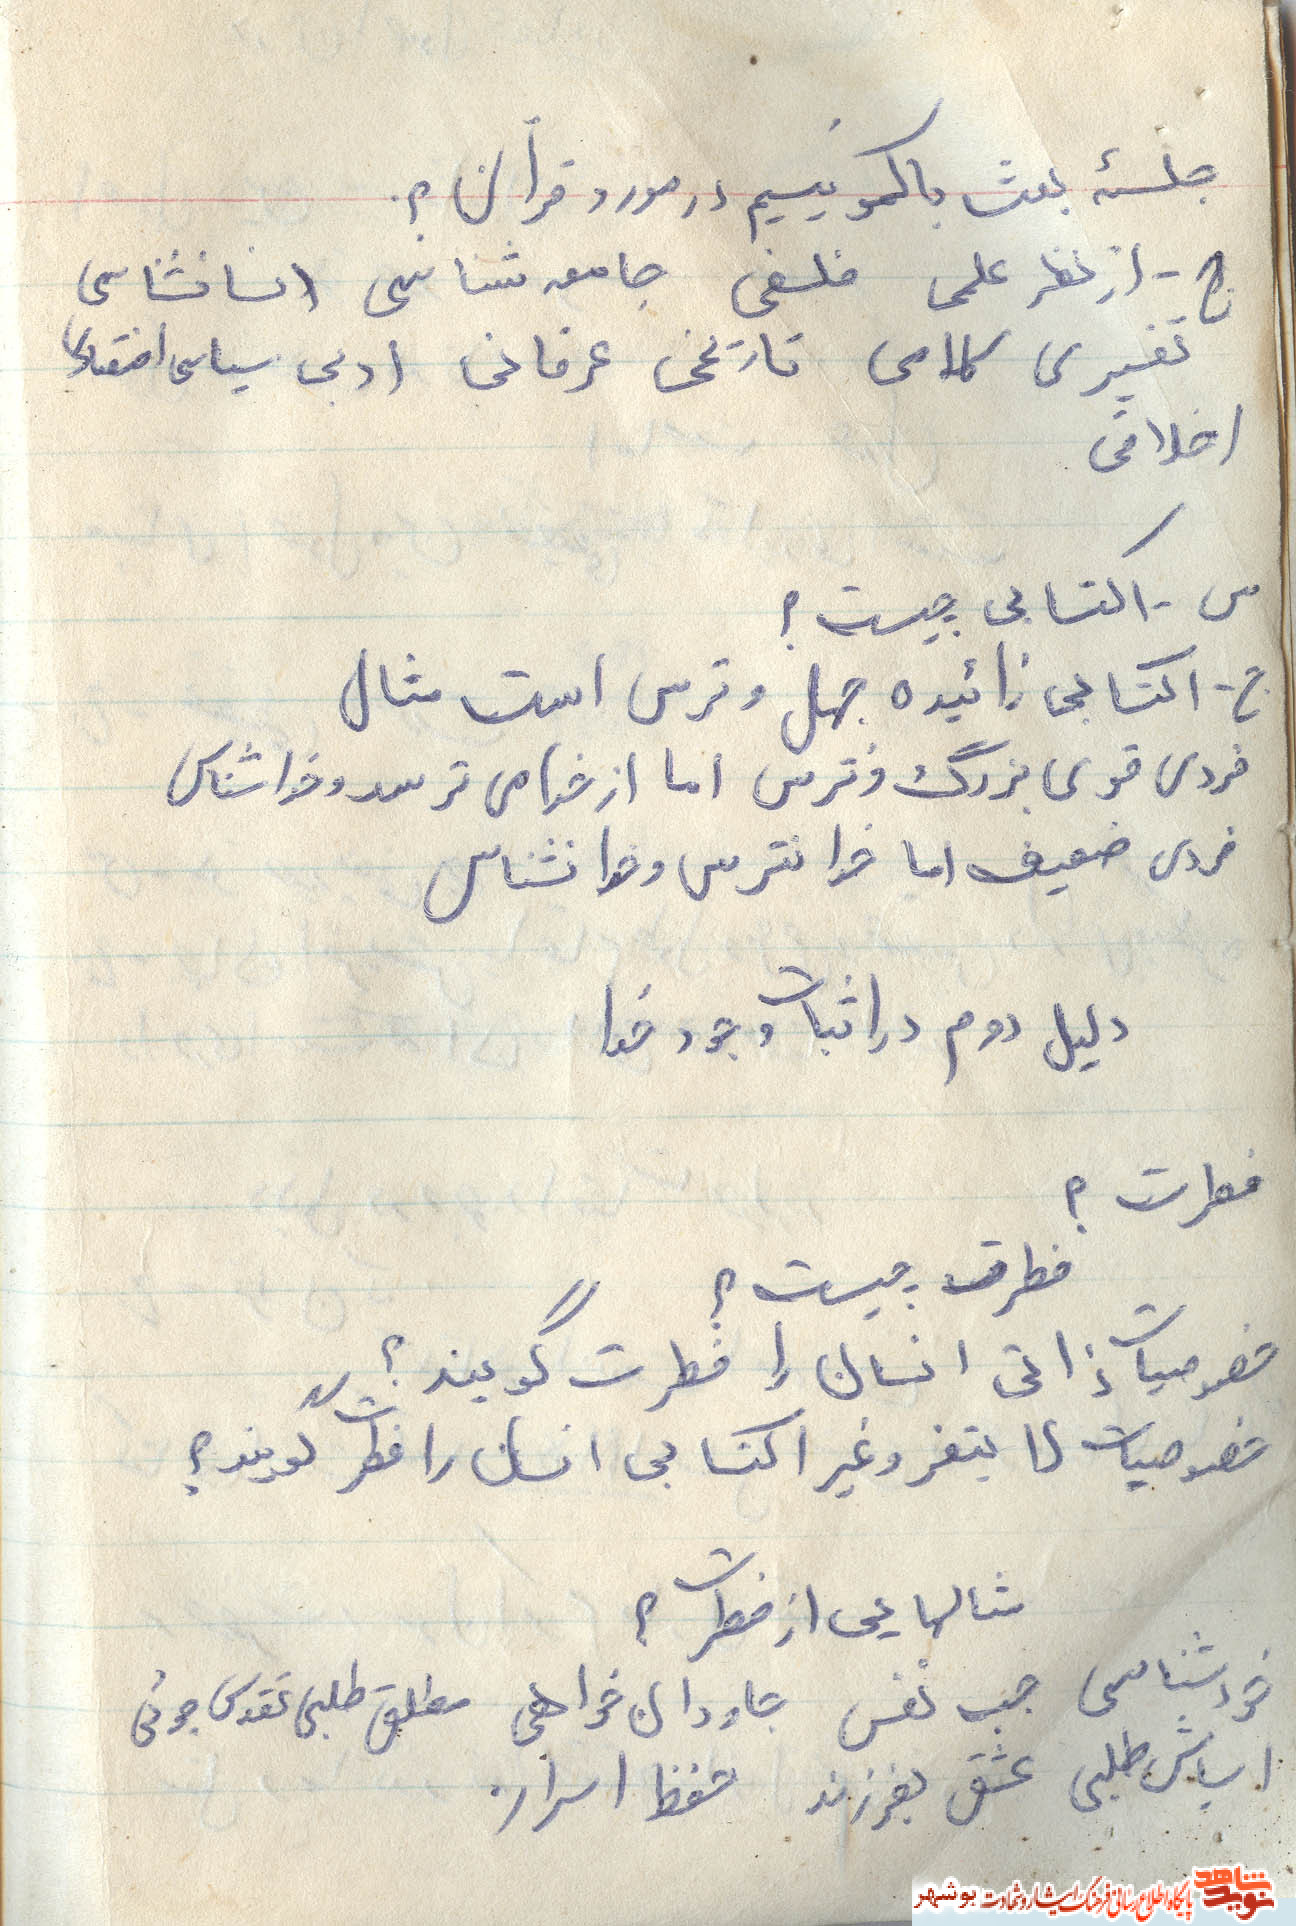 جلسهٔ بحث با کمونیسیم در مورد قرآن ؟.
ج - از نظر علمی فلسفی جامعه شناسی انسانشناسی
تفسیری کلامی تاریخی عرفانی ادبی سیاسی اقتصادی
اخلاقی
س - اکتسابی چیست ؟
ج - اکتسابی زائیده جهل و ترس است مثال
فردی قوی بزرگ و نترس اما از خدا می ترسد و خداشناس
فردی ضعیف اما خدا نترس و خدا نشناس
دلیل دوم در اثبات وجود خدا
فطرت ؟
فطرت چیست ؟
خصوصیات ذاتی انسان را فطرت گویند ؟
خصوصیات لا یتغر و غیر اکتسابی انسان را فطرت گویند ؟
مثالهایی از فطرت ؟
خودشناسی حب نفس جاودان خواهی مطلق طلبی تقدس جوئی
اسایش طلبی عشق بفرزند حفظ اسرار.
نوید شاهد
پایگاه اطلاع رسانی فرهنگ ایثار و شهادت بوشهر